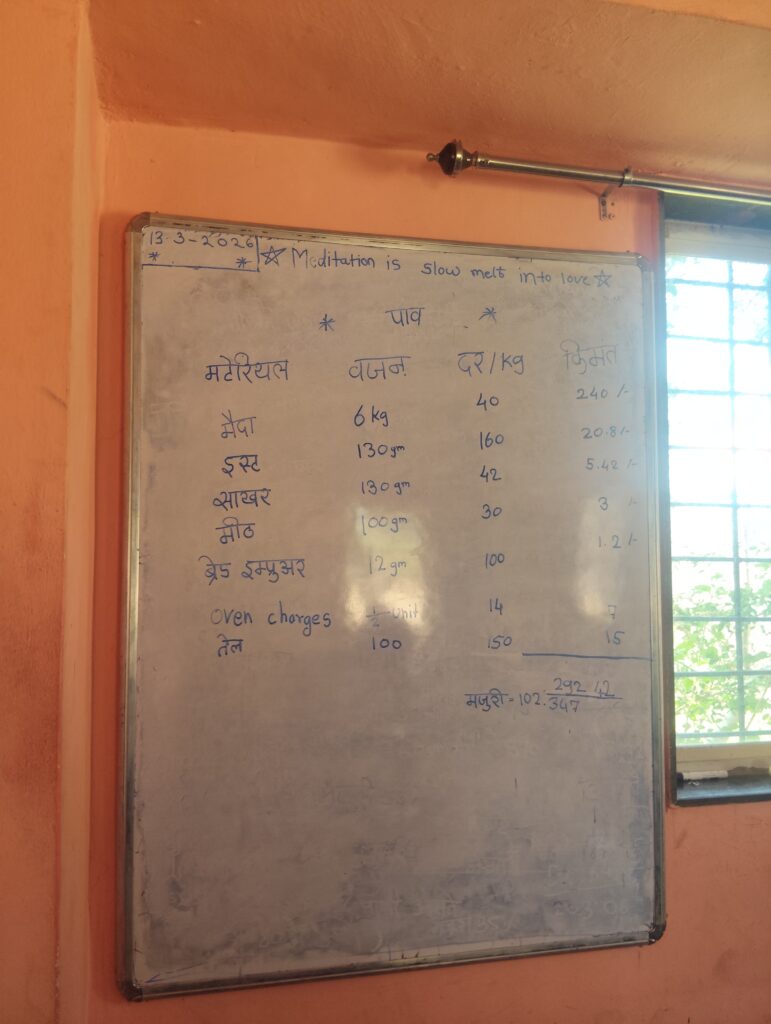 13.3-2026 ☆ Meditation is slow melt into love ☆
* *
* पाव *
मटेरियल वजन दर/kg किंमत
मैदा 6kg 40 240/-
इस्ट 130gm 160 20.8/-
साखर 130gm 42 5.42/-
मीठ 100gm 30 3/-
ब्रेड इम्प्रुअर 12gm 100 1.2/-
oven charges 1/2 unit 14 7
तेल 100 150 15
292.42
मजुरी = 102.347